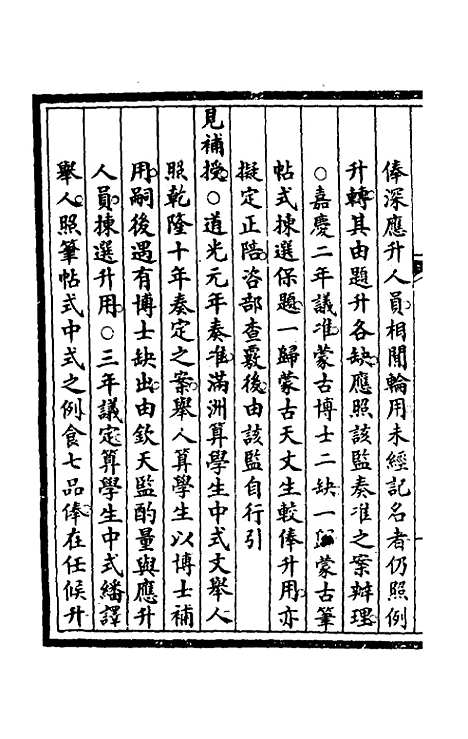 俸深應升人員相閒輪用未經記名者仍照例
升轉其由題升各缺應照該監奏准之案辦理
○嘉慶二年議准蒙古博士二缺一歸蒙古筆
帖式揀選保題一歸蒙古天文生較俸升用亦
擬定正陪咨部查覈後由該監自行引
見補授○道光元年奏准滿洲算學生中式文舉人
照乾隆十年奏定之案舉人算學生以博士補
用嗣後遇有博士缺出由欽天監酌量與應升
人員揀選升用○三年議定算學生中式繙譯
舉人照筆帖式中式之例食七品俸在任候升